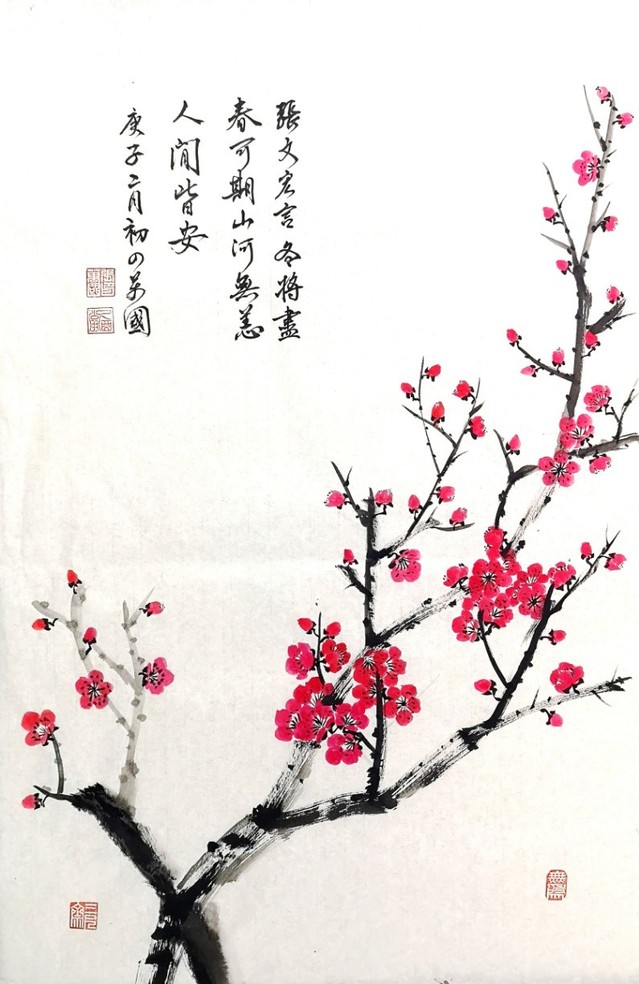 張文宏言冬將盡
春可期山河無恙
人間皆安
庚子二月初四呆國